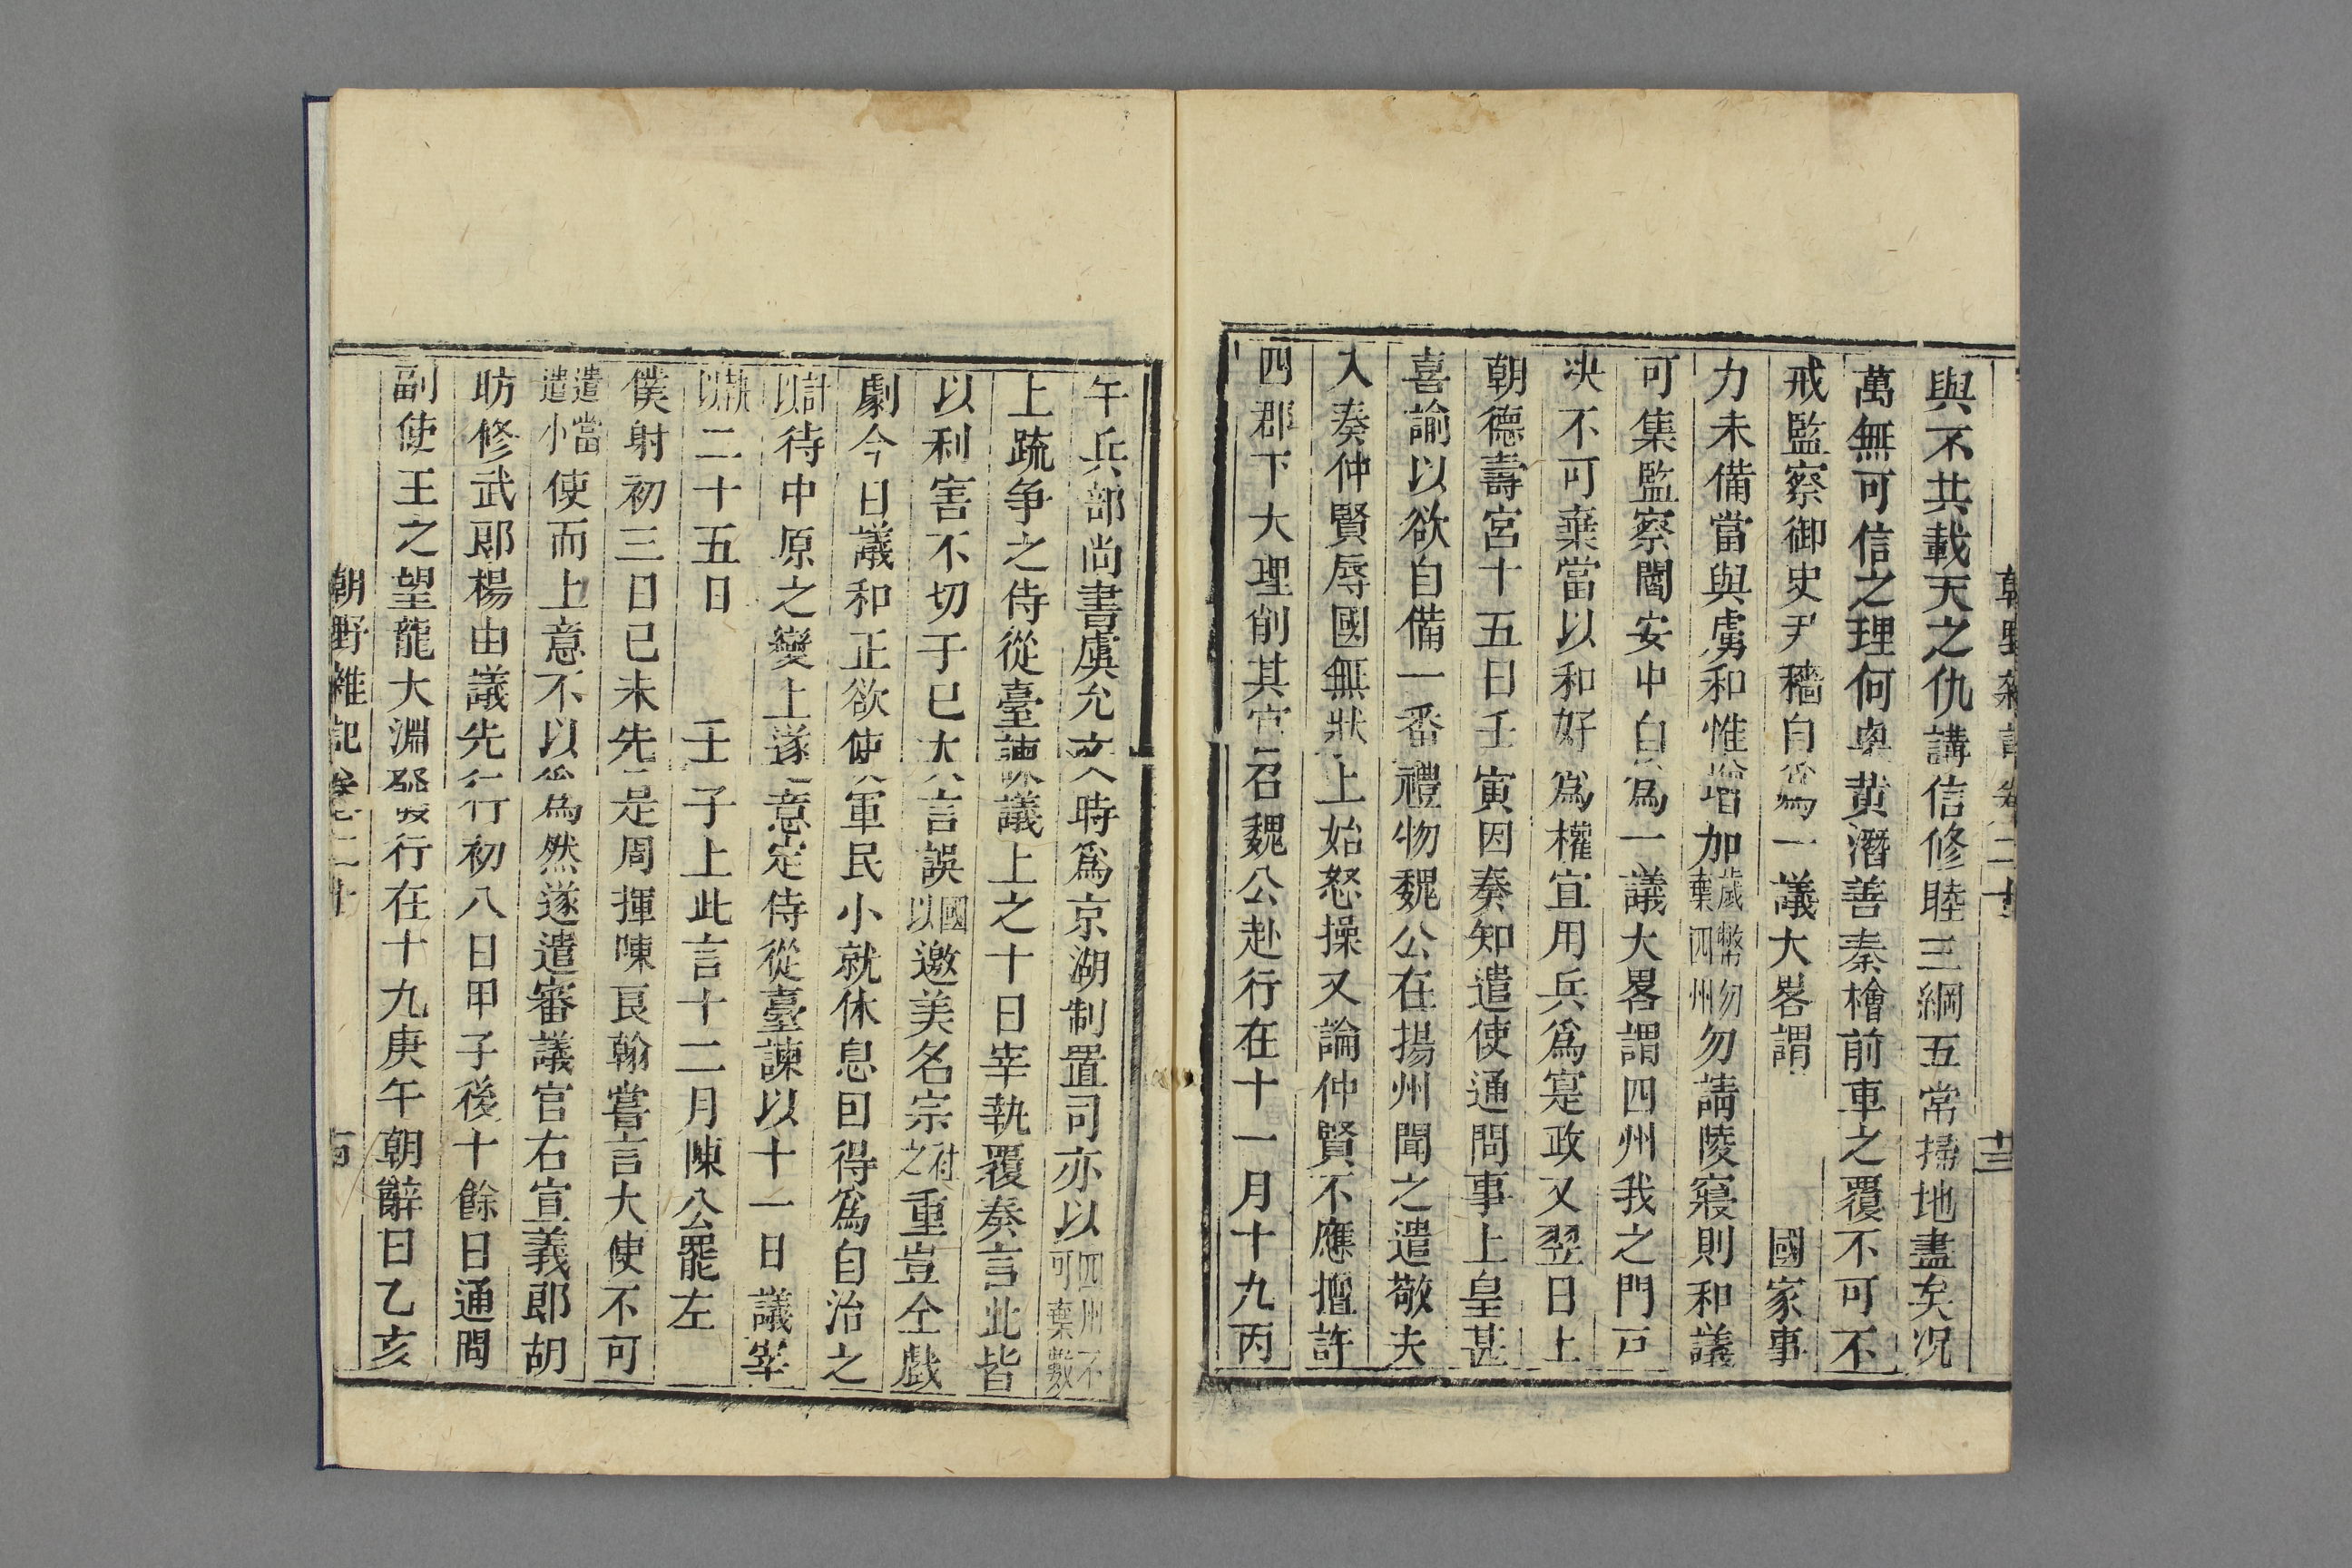 與不共載天之仇講信修睦三綱五常掃地盡矣况
萬無可信之理何與黄潛善秦檜前車之覆不可不
戒監察御史尹穡自爲一議大畧謂國家事
力未備當與虜和惟增加歲幣勿棄四州勿請陵寢則和議
可集監察閻安中自爲一議大畧謂四州我之門戸
決不可棄當以和好爲權宜用兵爲寔政又翌日上
朝德壽宮十五日壬寅因奏知遣使通問事上皇甚
喜諭以欲自備一番禮物魏公在揚州聞之遣敬夫
入奏仲賢辱國無狀上始怒操又論仲賢不應擅許
四郡下大理削其官召魏公赴行在十一月十九丙
午兵部尚書虞允文時爲京湖制置司亦以四州不可棄數
上疏争之侍從臺諫議上之十日宰執覆奏言此皆
以利害不切于已大言誤國以邀美名宗社之重豈仝戲
劇今日議和正欲使軍民小就休息囙得爲自治之
計以待中原之變上遂意定侍從臺諫以十一日議宰
執以二十五日壬子上此言十二月陳公罷左
僕射初三日已未先是周揮陳良翰嘗言大使不可
遣當遣小使而上意不以爲然遂遣審議官右宣義郎胡
昉修武郎楊由議先行初八日甲子後十餘日通問
副使王之望龍大淵發行在十九庚午朝辭日乙亥
朝野雜記卷二十